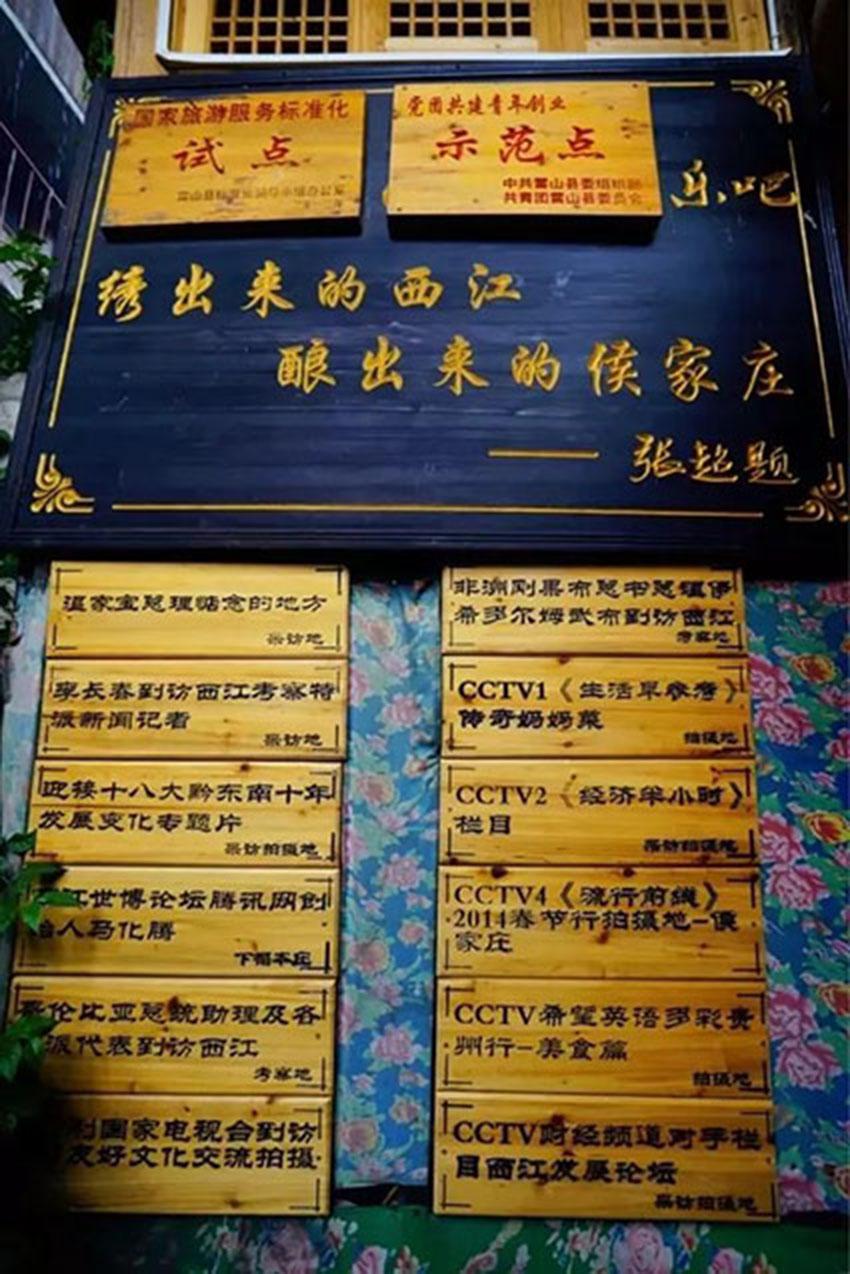 国家旅游服务标准化
试点
党团共建青年创业
示范点
中共雷山县委组织部
共青团雷山县委员会
乐吧
绣出来的西江
酿出来的侯家庄
——张超题
温家宝总理惦念的地方
采访地
李长春到访西江考察特
派新闻记者
采访地
迎接十八大黔东南十年
发展变化专题片
采访拍摄地
江世博论坛腾讯网创
始人马化腾
下榻本庄
哥伦比亚总统助理及各
派代表到访西江
考察地
利国家电视台到访
友好文化交流拍摄
非洲刚果布总书总理伊
希多尔姆武布到访西江
考察地
CCTV1《生活早参考》
传奇妈妈菜
拍摄地
CCTV2《经济半小时》
栏目
采访拍摄地
CCTV4《流行前线》
2014春节行拍摄地-侯
家庄
CCTV希望英语多彩贵
州行-美食篇
拍摄地
CCTV财经频道对手栏
目西江发展论坛
采访拍摄地